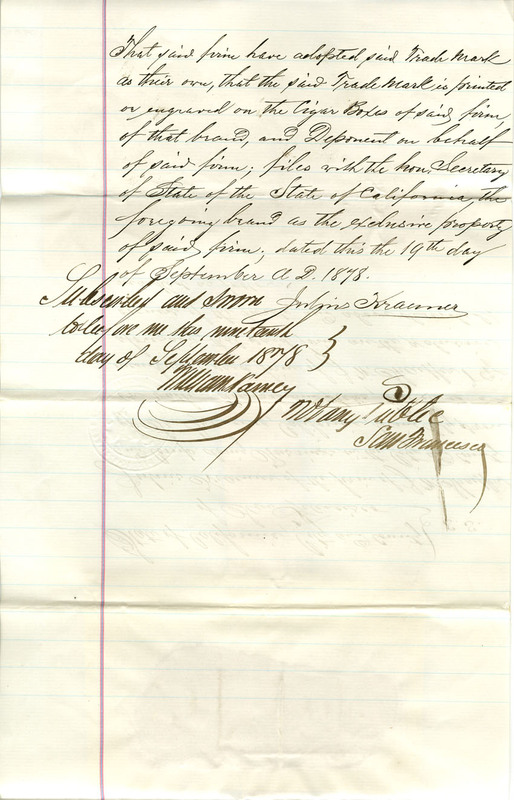 That said firm have adopted said Trade Mark
as their own, that the said Trade Mark is printed
or engraved on the Cigar Boxes of said firm,
of that brand, and Deponent on behalf
of said firm; files with the hon. Secretary
of State of the State of California, the
foregoing brand as the exclusive property
of said firm, dated this the 19th day
of September A.D. 1878.
Julius Kraemer
Subscribed and sworn
to before me this nineteenth
day of September 1878 }
William
Notary Public
San Francisco